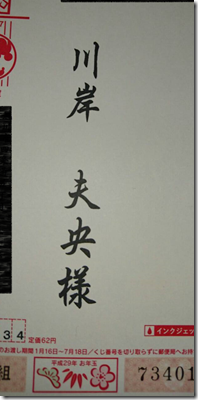 川岸 夫央様
34
定価62円
インクジェッ
のお渡し期間 1月16日〜7月18日/くじ番号を切り取らずに郵便局へお持
平成29年 お年玉
組
73401